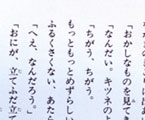 「おかしなものを見てき
「なんだい。キツネのよ
「ちがう、ちがう。
もっともっとめずらしい
ふるくさくない、あたら
「へえ、なんだろう。」
「おにが、立てふだ立て